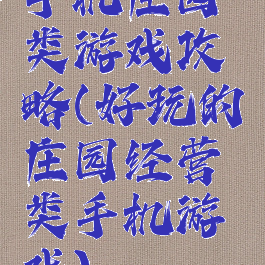 手机庄园
类游戏攻
略(好玩的
庄园经营
类手机游
戏)